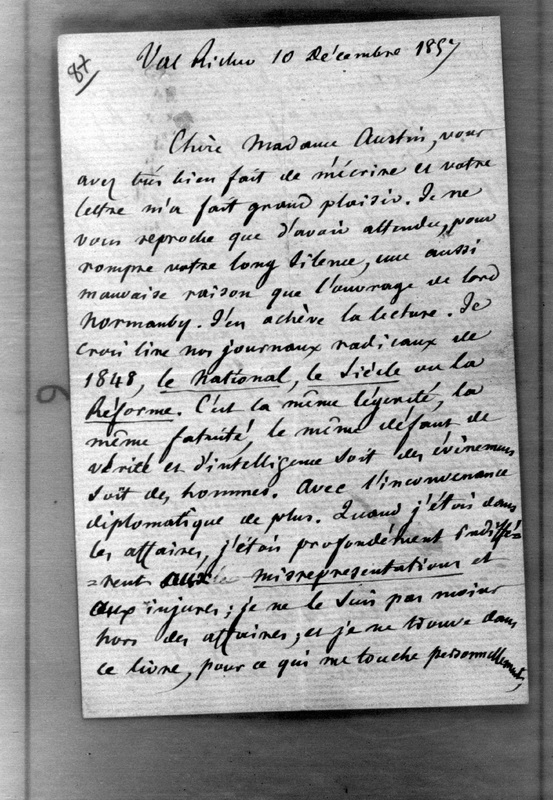 87
Val Richer 10 Décembre 1857
Chère Madame Austin, vous
avez très bien fait de m'écrire et votre
lettre m'a fait grand plaisir. Je ne
vous reproche que d'avoir attendu, pour
rompre votre long silence, une aussi
mauvaise raison que l'ouvrage de lord
Normanby. J'en achève la lecture. Je
crois lire nos journaux radicaux de
1848, le National, le Siècle ou la
Réforme. C'est la même légèreté, la
même fatuité, le même défaut de
vérité et d'intelligence soit des évènemens
soit des hommes. Avec l'inconvenance
diplomatique de plus. Quand j'étois dans
les affaires, j'étois profondément indiffé-
=rent aux misrepresentations et
aux injures; je ne le suis pas moins
hors des affaires; et je ne trouve dans
ce livre, pour ce qui me touche personnellement,
6